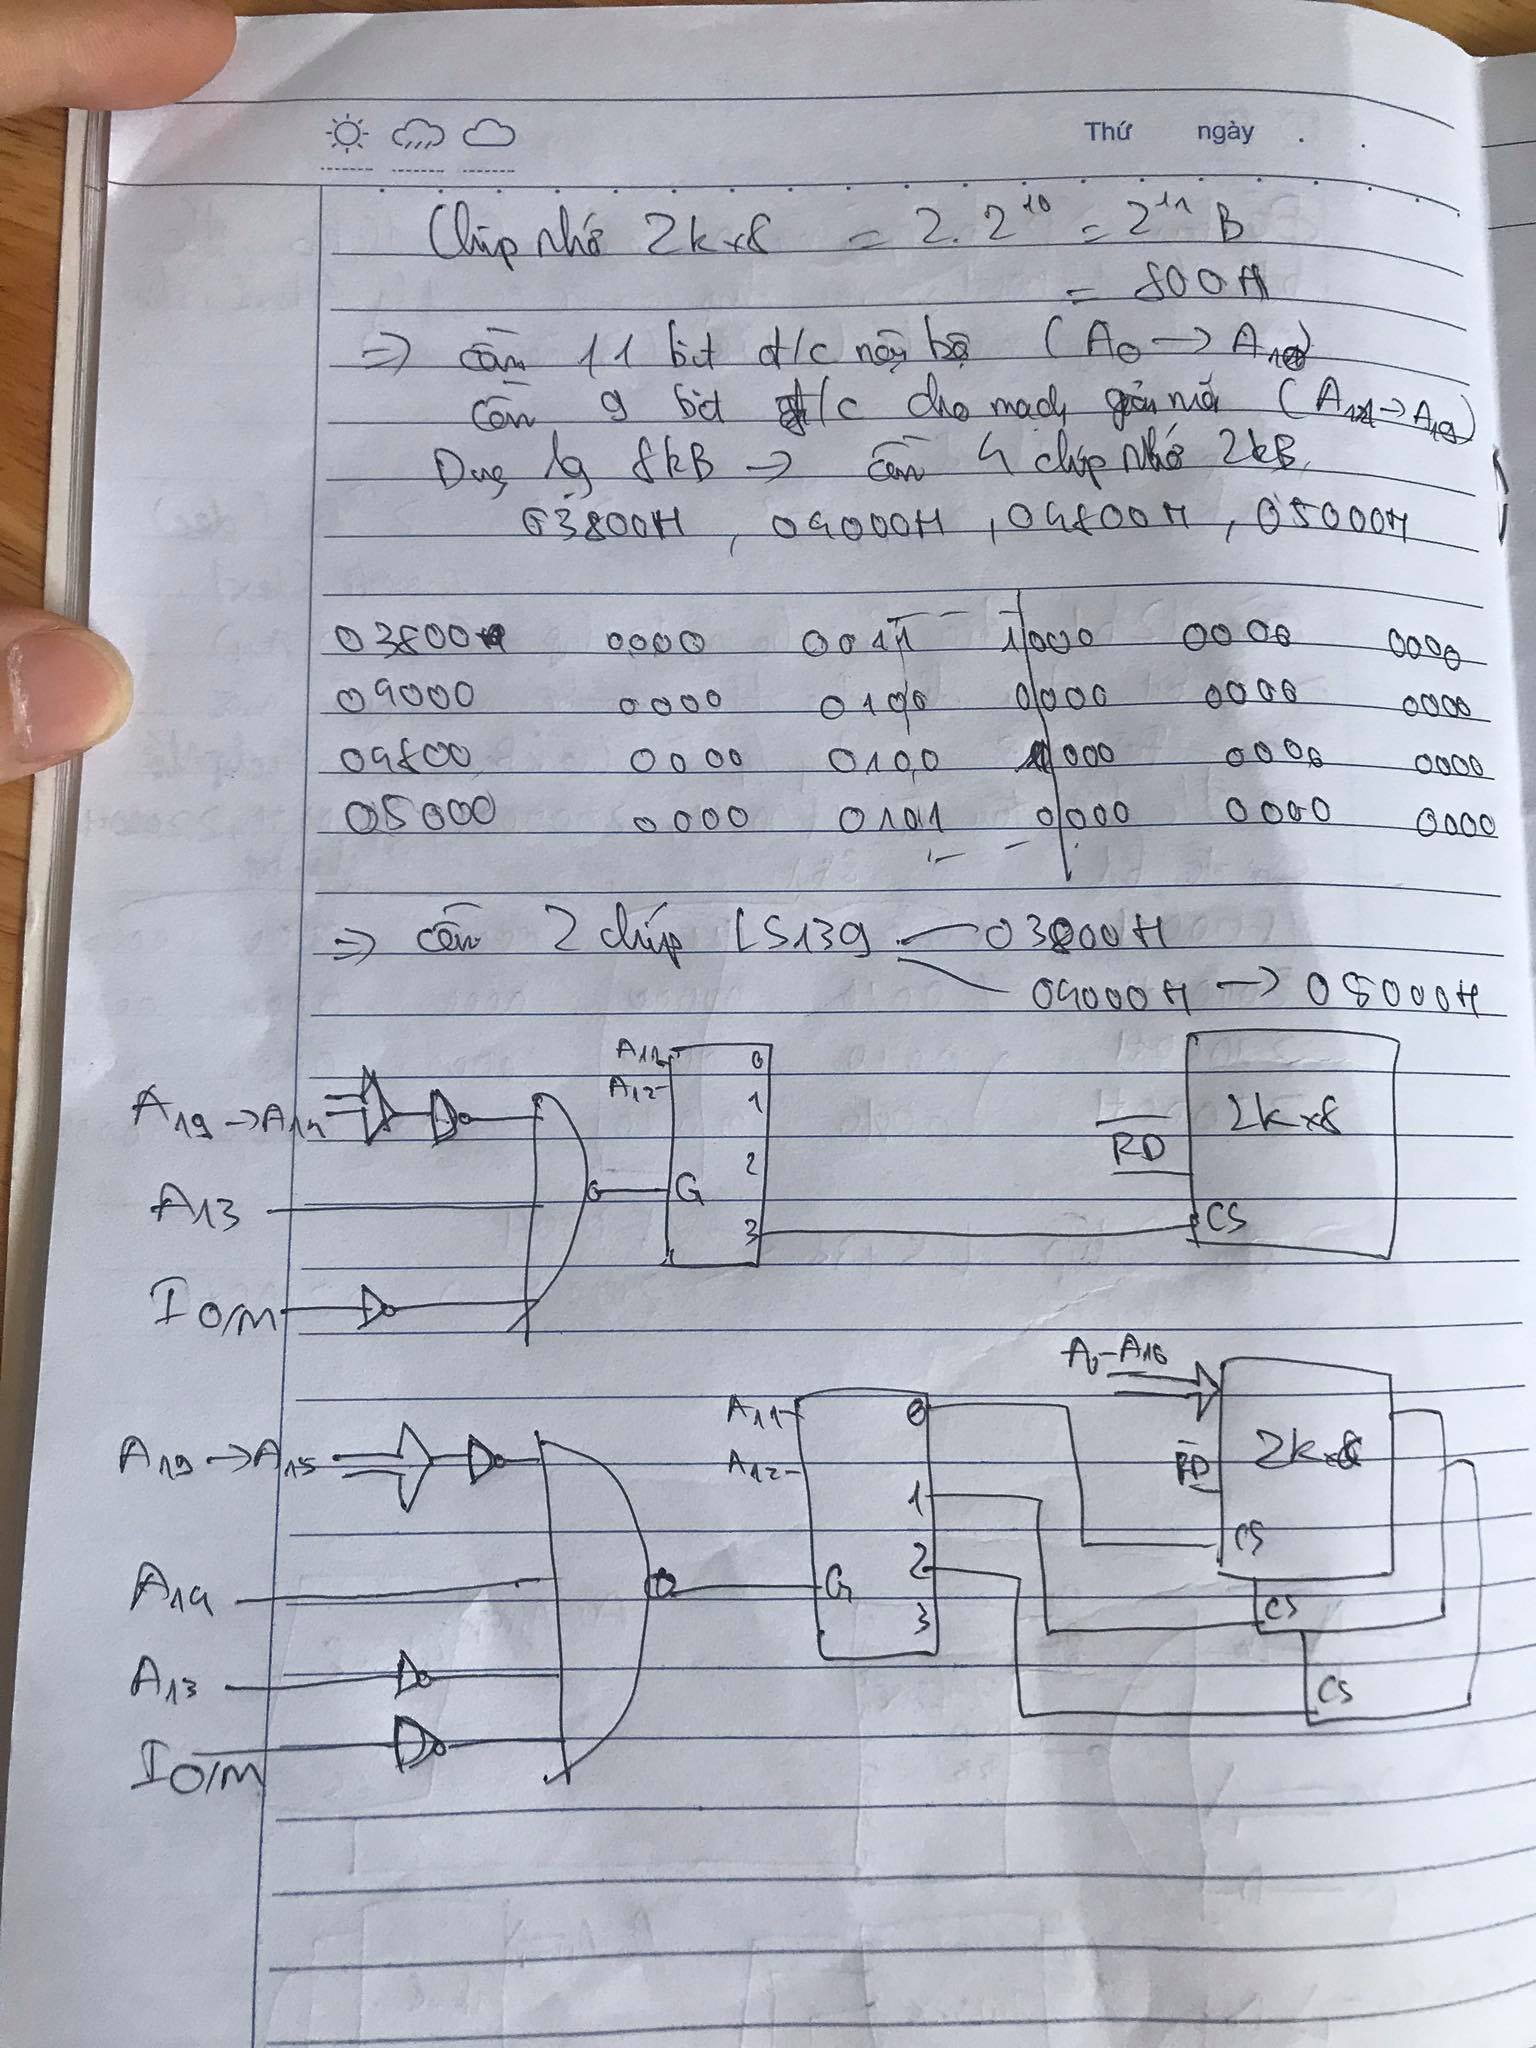 Thứ ngày
Chip nhớ 2k×8 = 2. 2^10 = 2^11 B
= 800H
=> cần 11 bit đ/c nội bộ (A0 → A10)
cần 9 bit đ/c cho mạch giải mã (A11 → A19)
Dung lg 8kB → cần 4 chip nhớ 2kB
03800H, 04000H, 04800H, 05000H
03800H 0000 0011 1000 0000 0000
04000 0000 0100 0000 0000 0000
04800 0000 0100 1000 0000 0000
05000 0000 0101 0000 0000 0000
=> cần 2 chip LS139 03800H
04000H → 05000H
A19 → A14
A13
IO/M
A11
A12
G
0
1
2
3
RD
2k×8
CS
A19 → A15
A14
A13
IO/M
A11
A12
G
0
1
2
3
A0-A10
RD
2k×8
CS
CS
CS